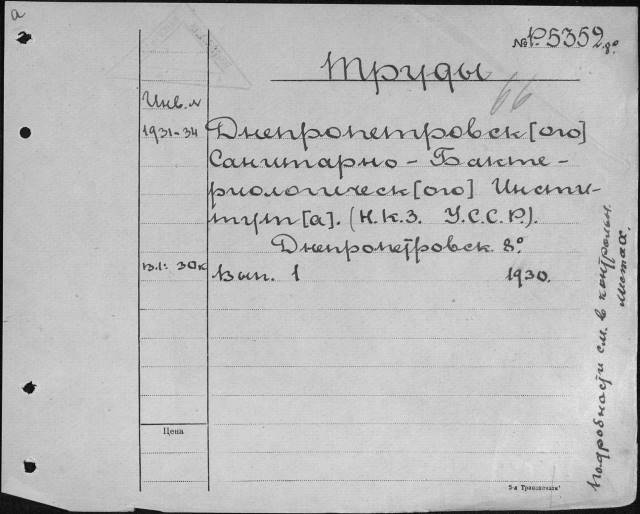 а
№ Р-5352 8°
Труды
66
Инв. №
1931-34
Днепропетровск[ого]
Санитарно-Бакте-
риологическ[ого] Инсти-
тут[а]. (Н.К.З. У.С.С.Р.).
Днепропетровск. 8°.
в.1: 30к
Вып. 1 1930.
Цена
Подробности см. в контрольн.
листах.